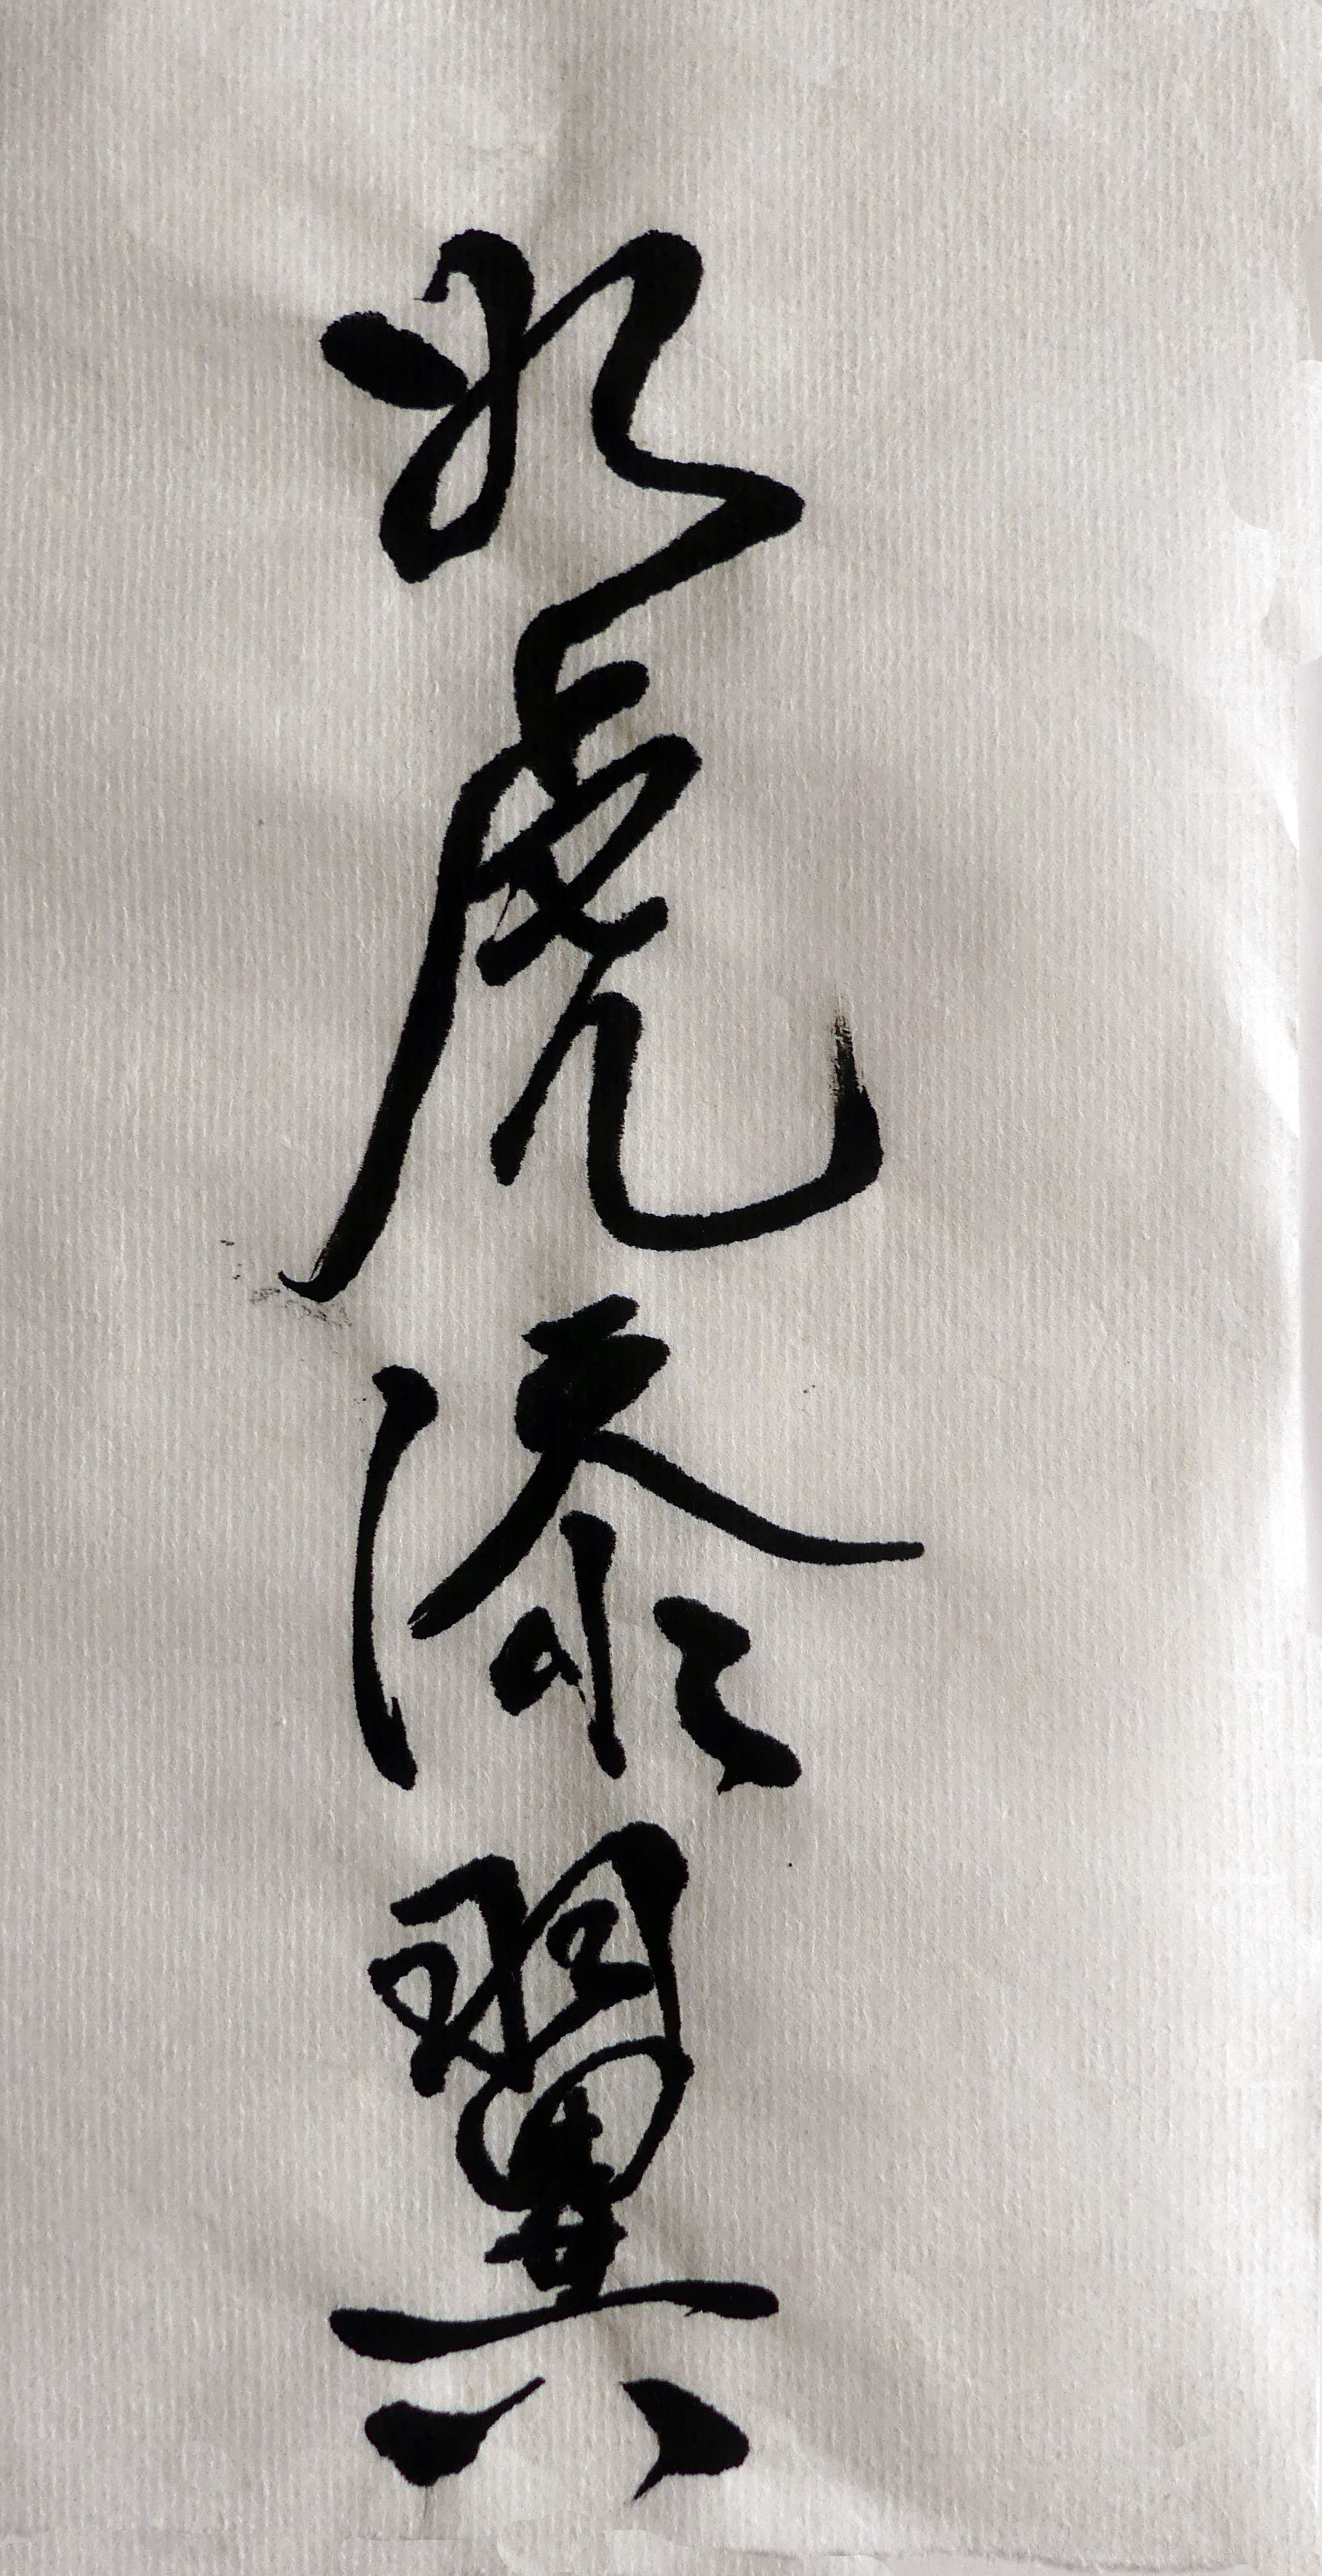 如虎添翼